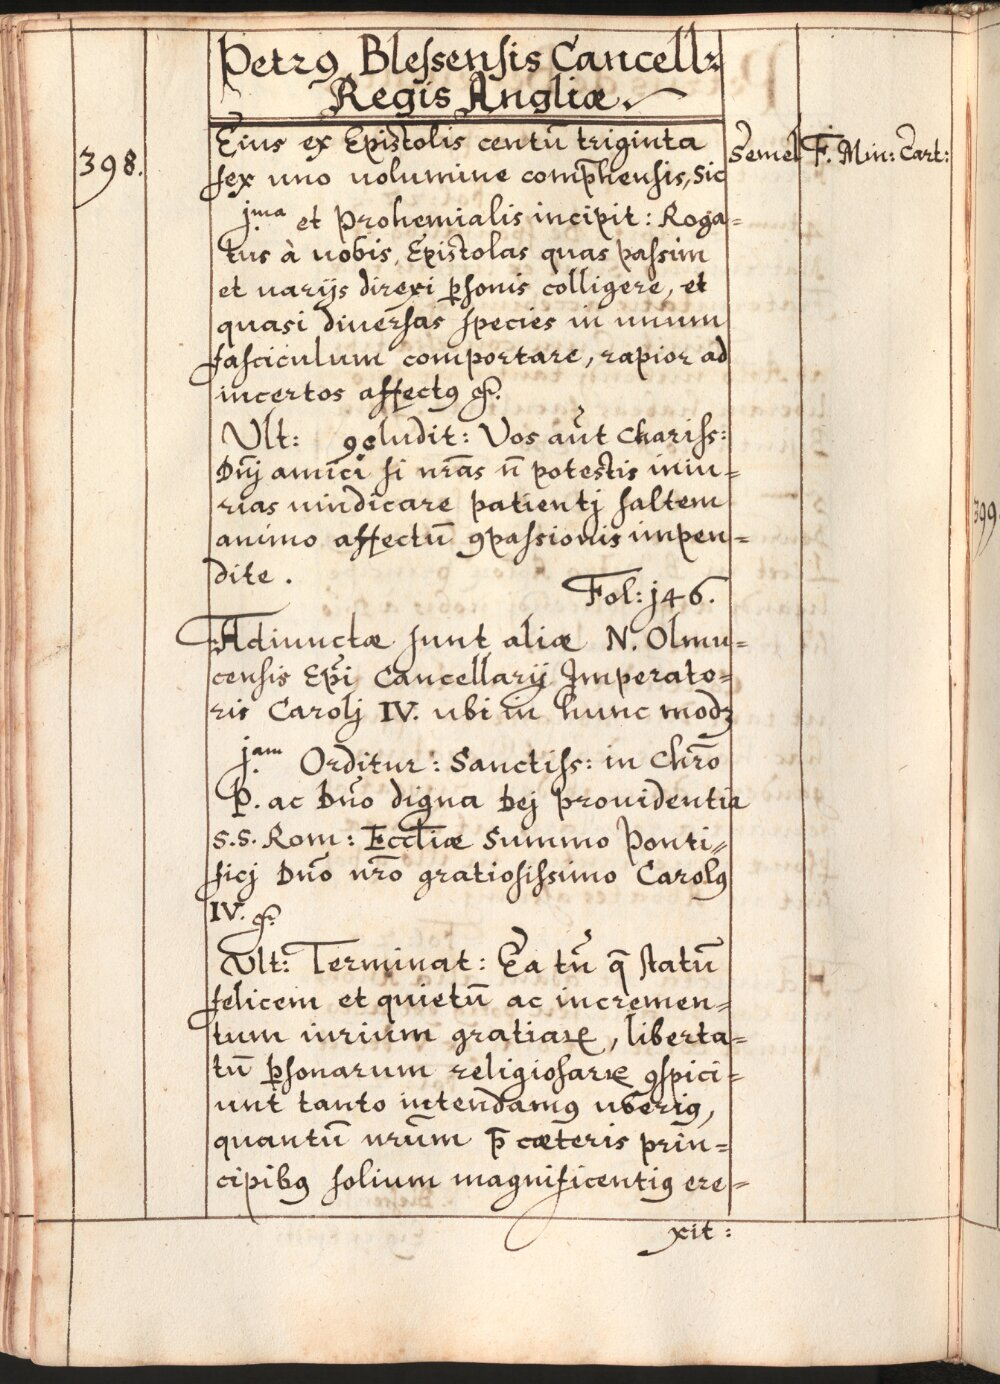 Petrꝰ Blessensis Cancell:
Regis Angliæ.
398.
Eius ex Epistolis centū triginta
Semel
F. Min: Cart:
sex uno uolumine comp̄hensis, sic
jma et Prohemialis incipit: Roga=
tus à uobis, Epistolas quas passim
et uarijs direxi ꝑsonis colligere, et
quasi diuersas species in unum
fasciculum comportare, rapior ad
incertos affectꝰ &.
Vlt: ꝯcludit: Vos aūt chariss:
Dn̄j amici si nr̄as n̄ potestis iniu=
rias uindicare patientj saltem
animo affectū ꝯpassionis impen=
dite.
Fol: j46.
Adiunctæ sunt aliæ N. Olmu=
censis Ep̄i Cancellarij Imperato=
ris Carolj IV. ubi in hunc modꝫ
jam Orditur: Sanctiss: in Chr̄o
P. ac Dn̄o digna Dej prouidentia
S.S. Rom: Eccl̄iæ Summo Ponti=
ficj Dn̄o nr̄o gratiosissimo Carolꝰ
IV. &
Vlt: Terminat: Ea tn̄ q̄ statū
felicem et quietū ac incremen=
tum iurium gratiaꝝ, liberta=
tū ꝑsonarum religiosaꝝ ꝯspici=
unt tanto intendamꝰ uberiꝰ,
quantū nr̄um p̄ cæteris prin=
cipibꝰ solium magnificentiꝰ ere=
xit:
399